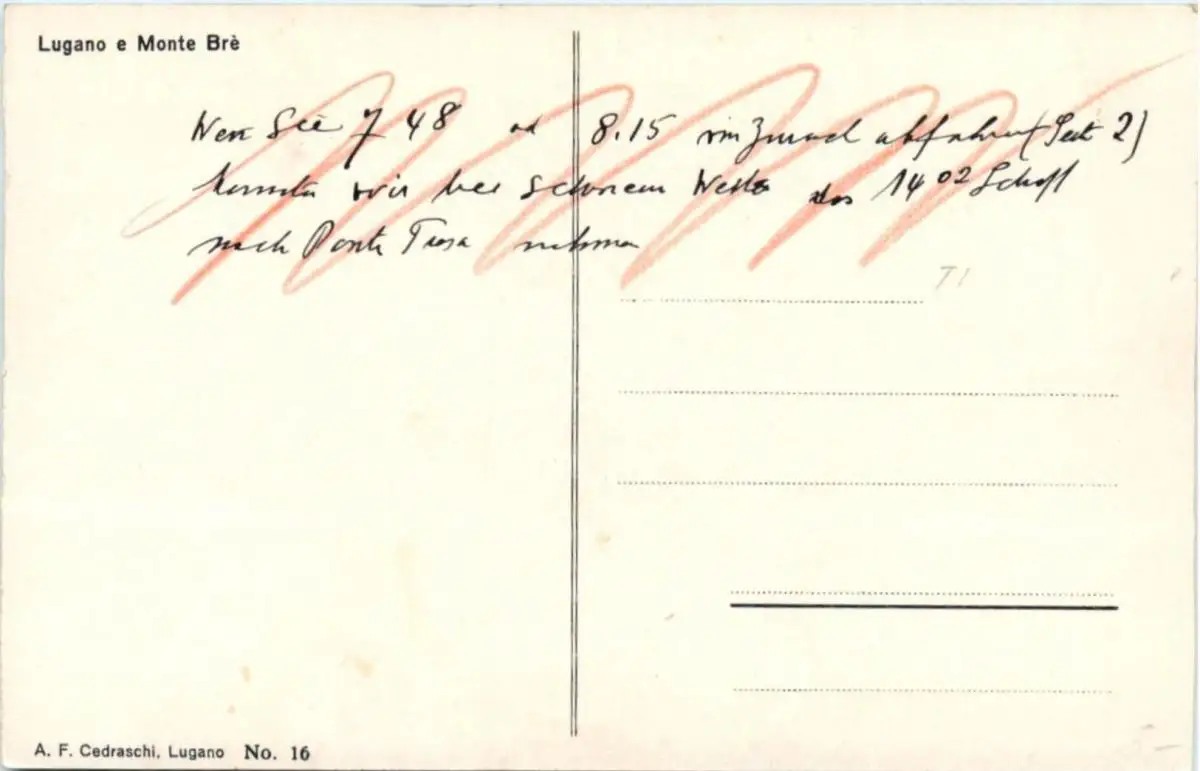 Lugano e Monte Brè
Wenn Sie 7 48 od 8.15 von Zürich abfahren (Seite 2)
könnten wir bei schönem Wetter das 14 02 Schiff
nach Ponte Tresa nehmen
TI
A. F. Cedraschi, Lugano No. 16